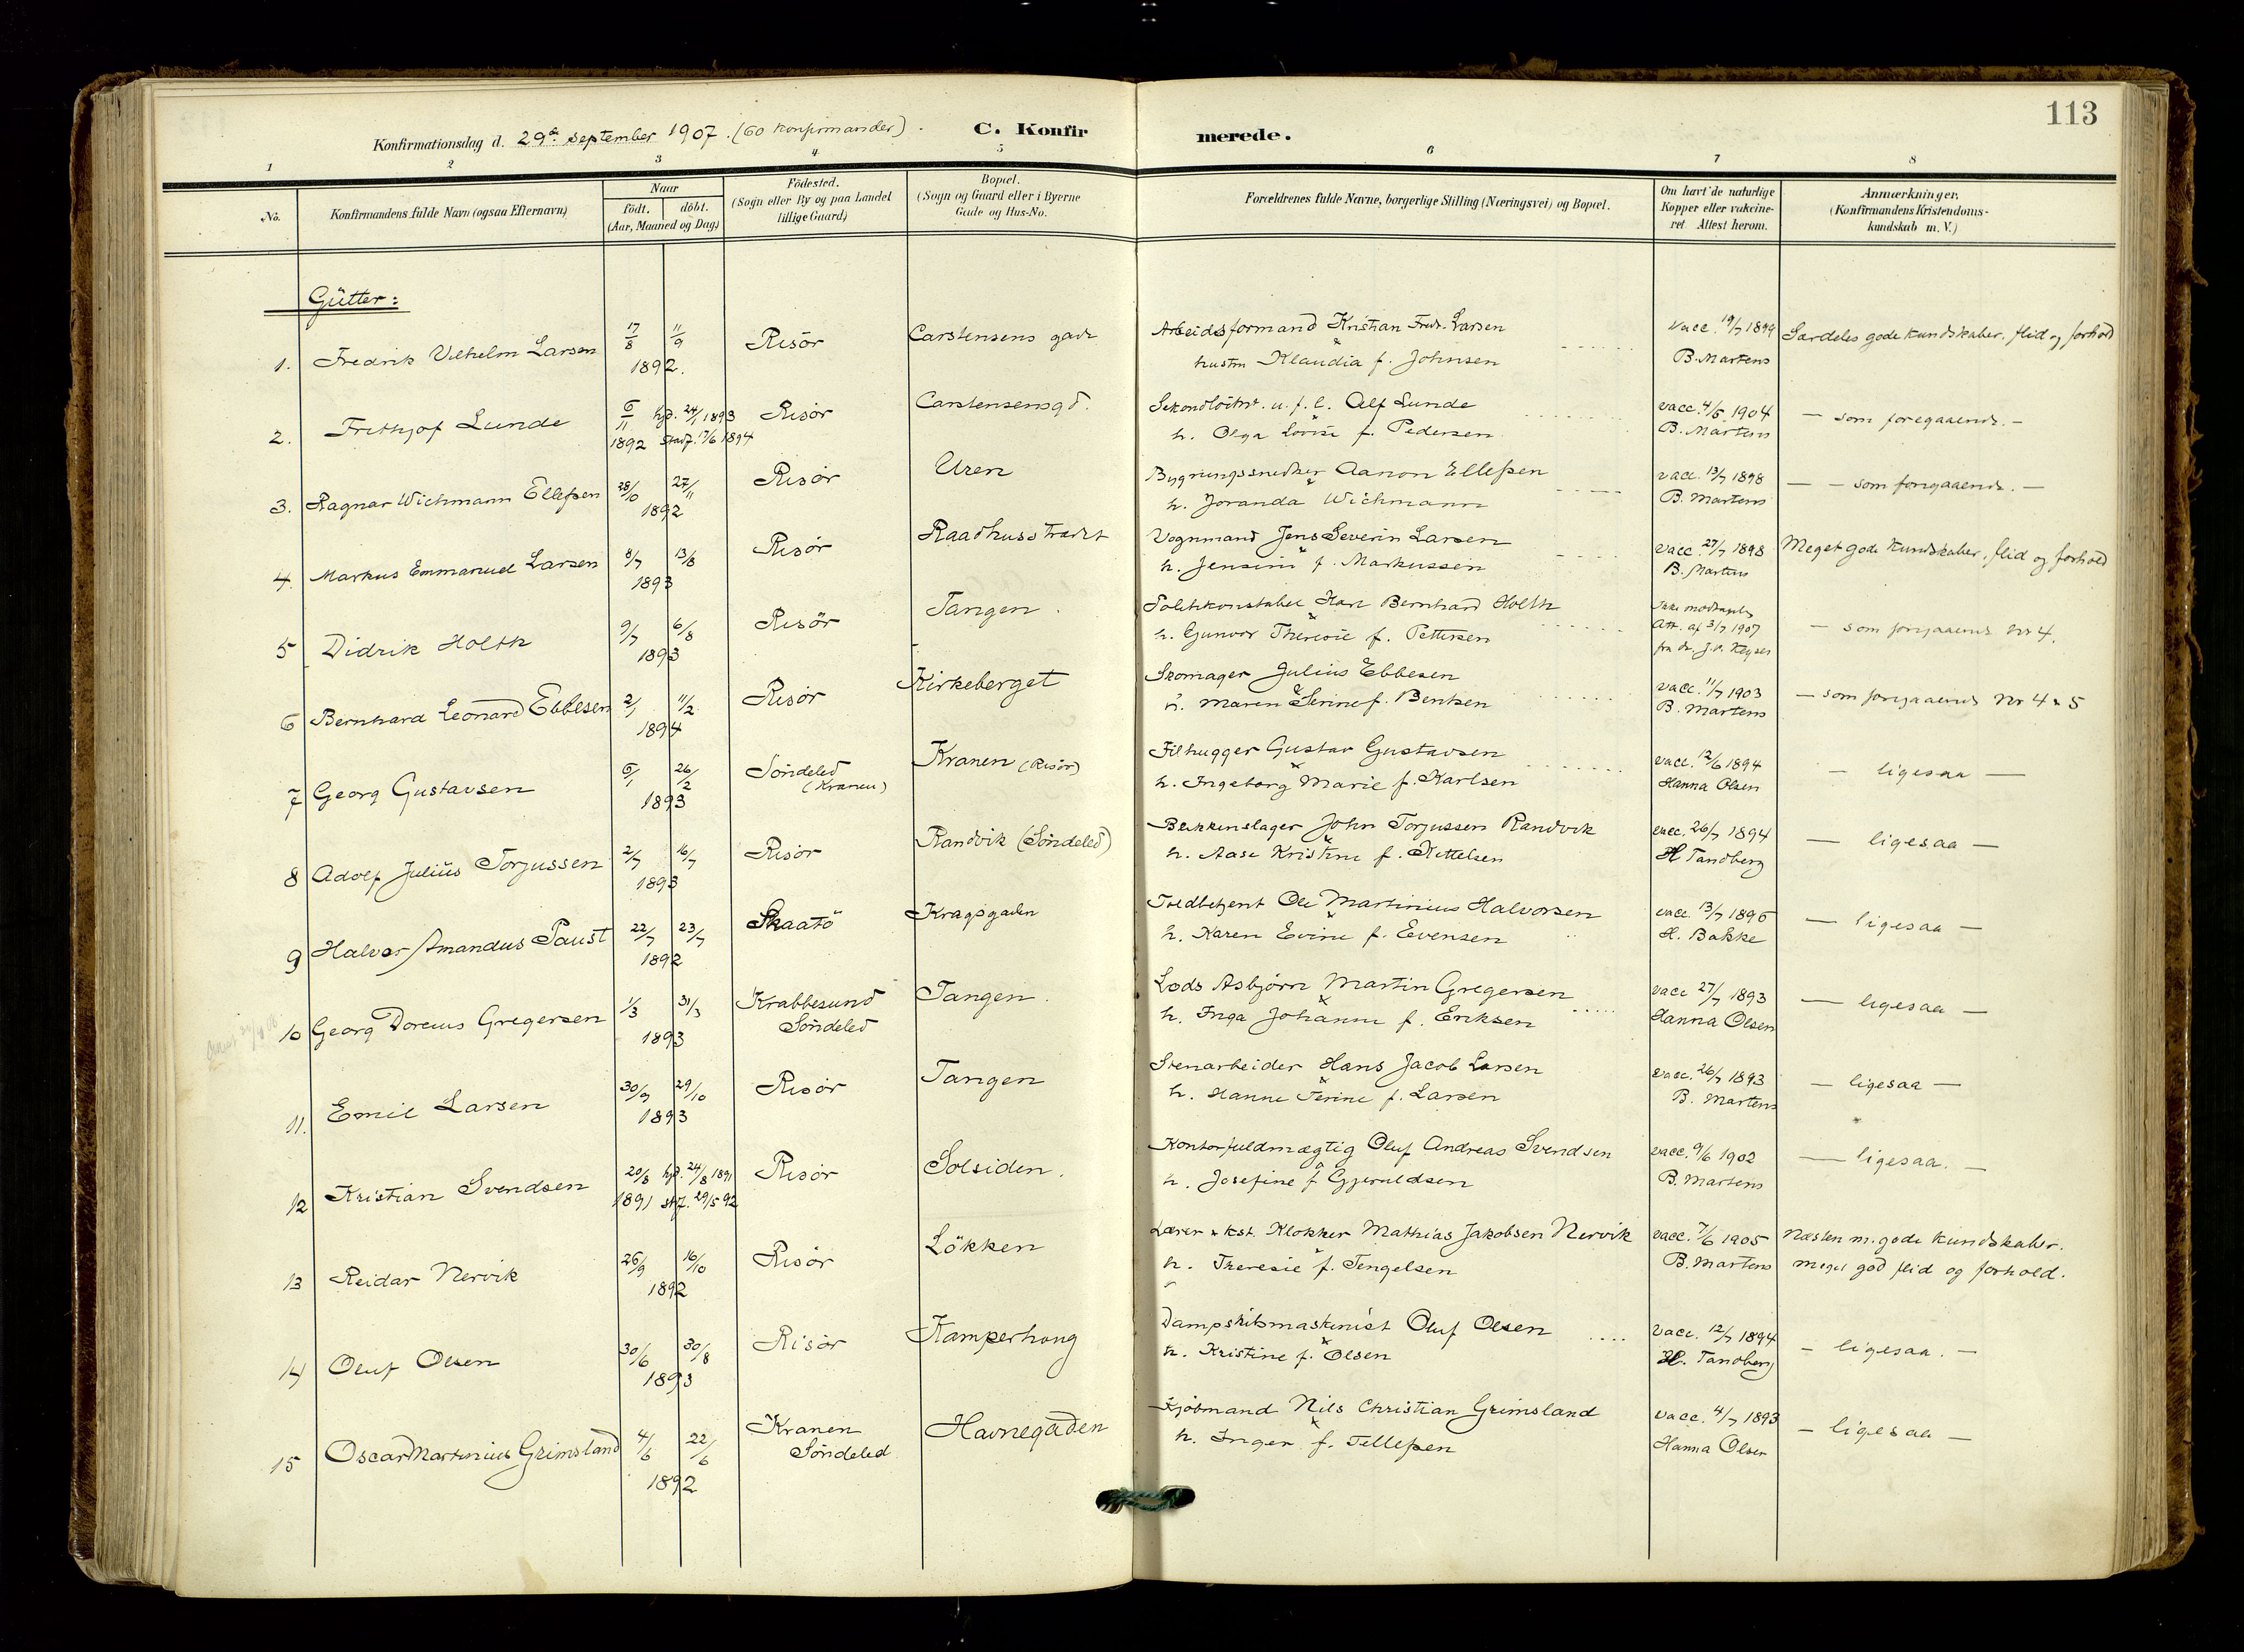 113
Konfirmationsdag d. 29de september 1907. (60 konfirmander). C. Konfirmerede.
1 2 3 4 5 6 7 8
No.
Konfirmandens fulde Navn (ogsaa Efternavn)
Naar
født. døbt.
(Aar, Maaned og Dag)
Fødested.
(Sogn eller By og paa Landet
tillige Gaard)
Bopæl.
(Sogn og Gaard eller i Byerne
Gade og Hus-No.
Forældrenes fulde Navne, borgerlige Stilling (Næringsvei) og Bopæl.
Om havt de naturlige
Kopper eller vakcine-
ret. Attest herom.
Anmærkninger.
(Konfirmandens Kristendoms-
kundskab m. V.)
Gutter:
1. Fredrik Vilhelm Larsen 17/8 11/9 Risör Carstensens gade Arbeidsformand Kristian Fredr. Larsen vacc. 19/7 1899 Særdeles gode kundskaber, flid og forhold
1892. hustru Klaudia f. Johnsen B. Martens
2. Frithjof Lunde 6/11 hjd. 24/1 1893 Risør Carstensensgd. Sekondløitnt. u. f. l. Alf Lunde vacc. 4/5 1904 — som foregaaende. —
1892 stadf. 17/6 1894 h. Olga Lovise f. Pedersen B. Martens
3. Ragnar Wichmann Ellefsen 28/10 27/11 Risør Uren Bygningssnedker Aanon Ellefsen vacc. 13/7 1898 — — som forgaaende. —
1892 h. Joranda Wichmann B. Martens
4. Markus Emmanuel Larsen 8/7 13/8 Risør Raadhusstrædet Vognmand Jens Severin Larsen vacc. 27/7 1898 Meget gode kundskaber, flid og forhold
1893 h. Jensine f. Markussen B. Martens
5 Didrik Holth 9/7 6/8 Risør Tangen. Politikonstabel Karl Bernhard Holth Ikke modtagelig — som forgaaende Nr 4.
1893 h. Gunvor Theresie f. Pettersen Att. af 3/7 1907
fra Dr. J. A. Keyser
6 Bernhard Leonard Ebbesen 2/1 11/2 Risør Kirkeberget Skomager Julius Ebbesen vacc. 11/7 1903 — som forgaaende Nr 4 & 5
1894 h. Maren Serine f. Bentsen B. Martens
7 Georg Gustavsen 6/1 26/2 Søndeled (Kranen) Kranen (Risør) Filhugger Gustav Gustavsen vacc. 12/6 1894 — ligesaa —
1893 h. Ingeborg Marie f. Karlsen Hanna Olsen
8 Adolf Julius Torjussen 2/7 16/7 Risør Randvik (Søndeled) Blikkenslager John Torjussen Randvik vacc. 26/7 1894 — ligesaa —
1893 h. Aase Kristine f. Kittelsen H. Tandberg
9 Halvor Amandus Paust 22/7 23/7 Skaatö Kragsgaden Toldbetjent Ole Martinius Halvorsen vacc. 13/7 1896 — ligesaa —
1892 h. Karen Evine f. Evensen H. Bakke
10 Georg Doreius Gregersen 1/3 31/3 Krabbesund Tangen. Lods Asbjørn Martin Gregersen vacc 27/7 1893 — ligesaa —
1893 Søndeled h. Inga Johanne f. Eriksen Hanna Olsen
11. Emil Larsen 30/9 29/10 Risør Tangen Stenarbeider Hans Jacob Larsen vacc. 26/7 1893 — ligesaa —
1893 h. Hanne Terine f. Larsen B. Martens
12 Kristian Svendsen 20/8 hjd. 24/8 1891 Risør Solsiden. Kontorfuldmægtig Oluf Andreas Svendsen vacc. 9/6 1902 — ligesaa. —
1891 stf. 29/5 92 h. Josefine f. Gjeruldsen B. Martens
13 Reidar Nervik 26/9 16/10 Risør Lökken Lærer & kst. Klokker Mathias Jakobsen Nervik vacc. 7/6 1905 Næsten m. gode kundskaber.
1892 h. Theresie f. Tengelsen B. Martens meget god flid og forhold.
14 Oluf Olsen 30/6 30/8 Risør Kamperhaug Dampskibsmaskinist Oluf Olsen vacc. 12/7 1894 — ligesaa. —
1893 h. Kristine f. Olsen H. Tandberg
15 Oscar Martinius Grimsland 4/6 22/6 Kranen Havnegaden Kjöbmand Nils Christian Grimsland vacc. 4/7 1893 — ligesaa —
1892 Søndeled h. Inger f. Tellefsen Hanna Olsen